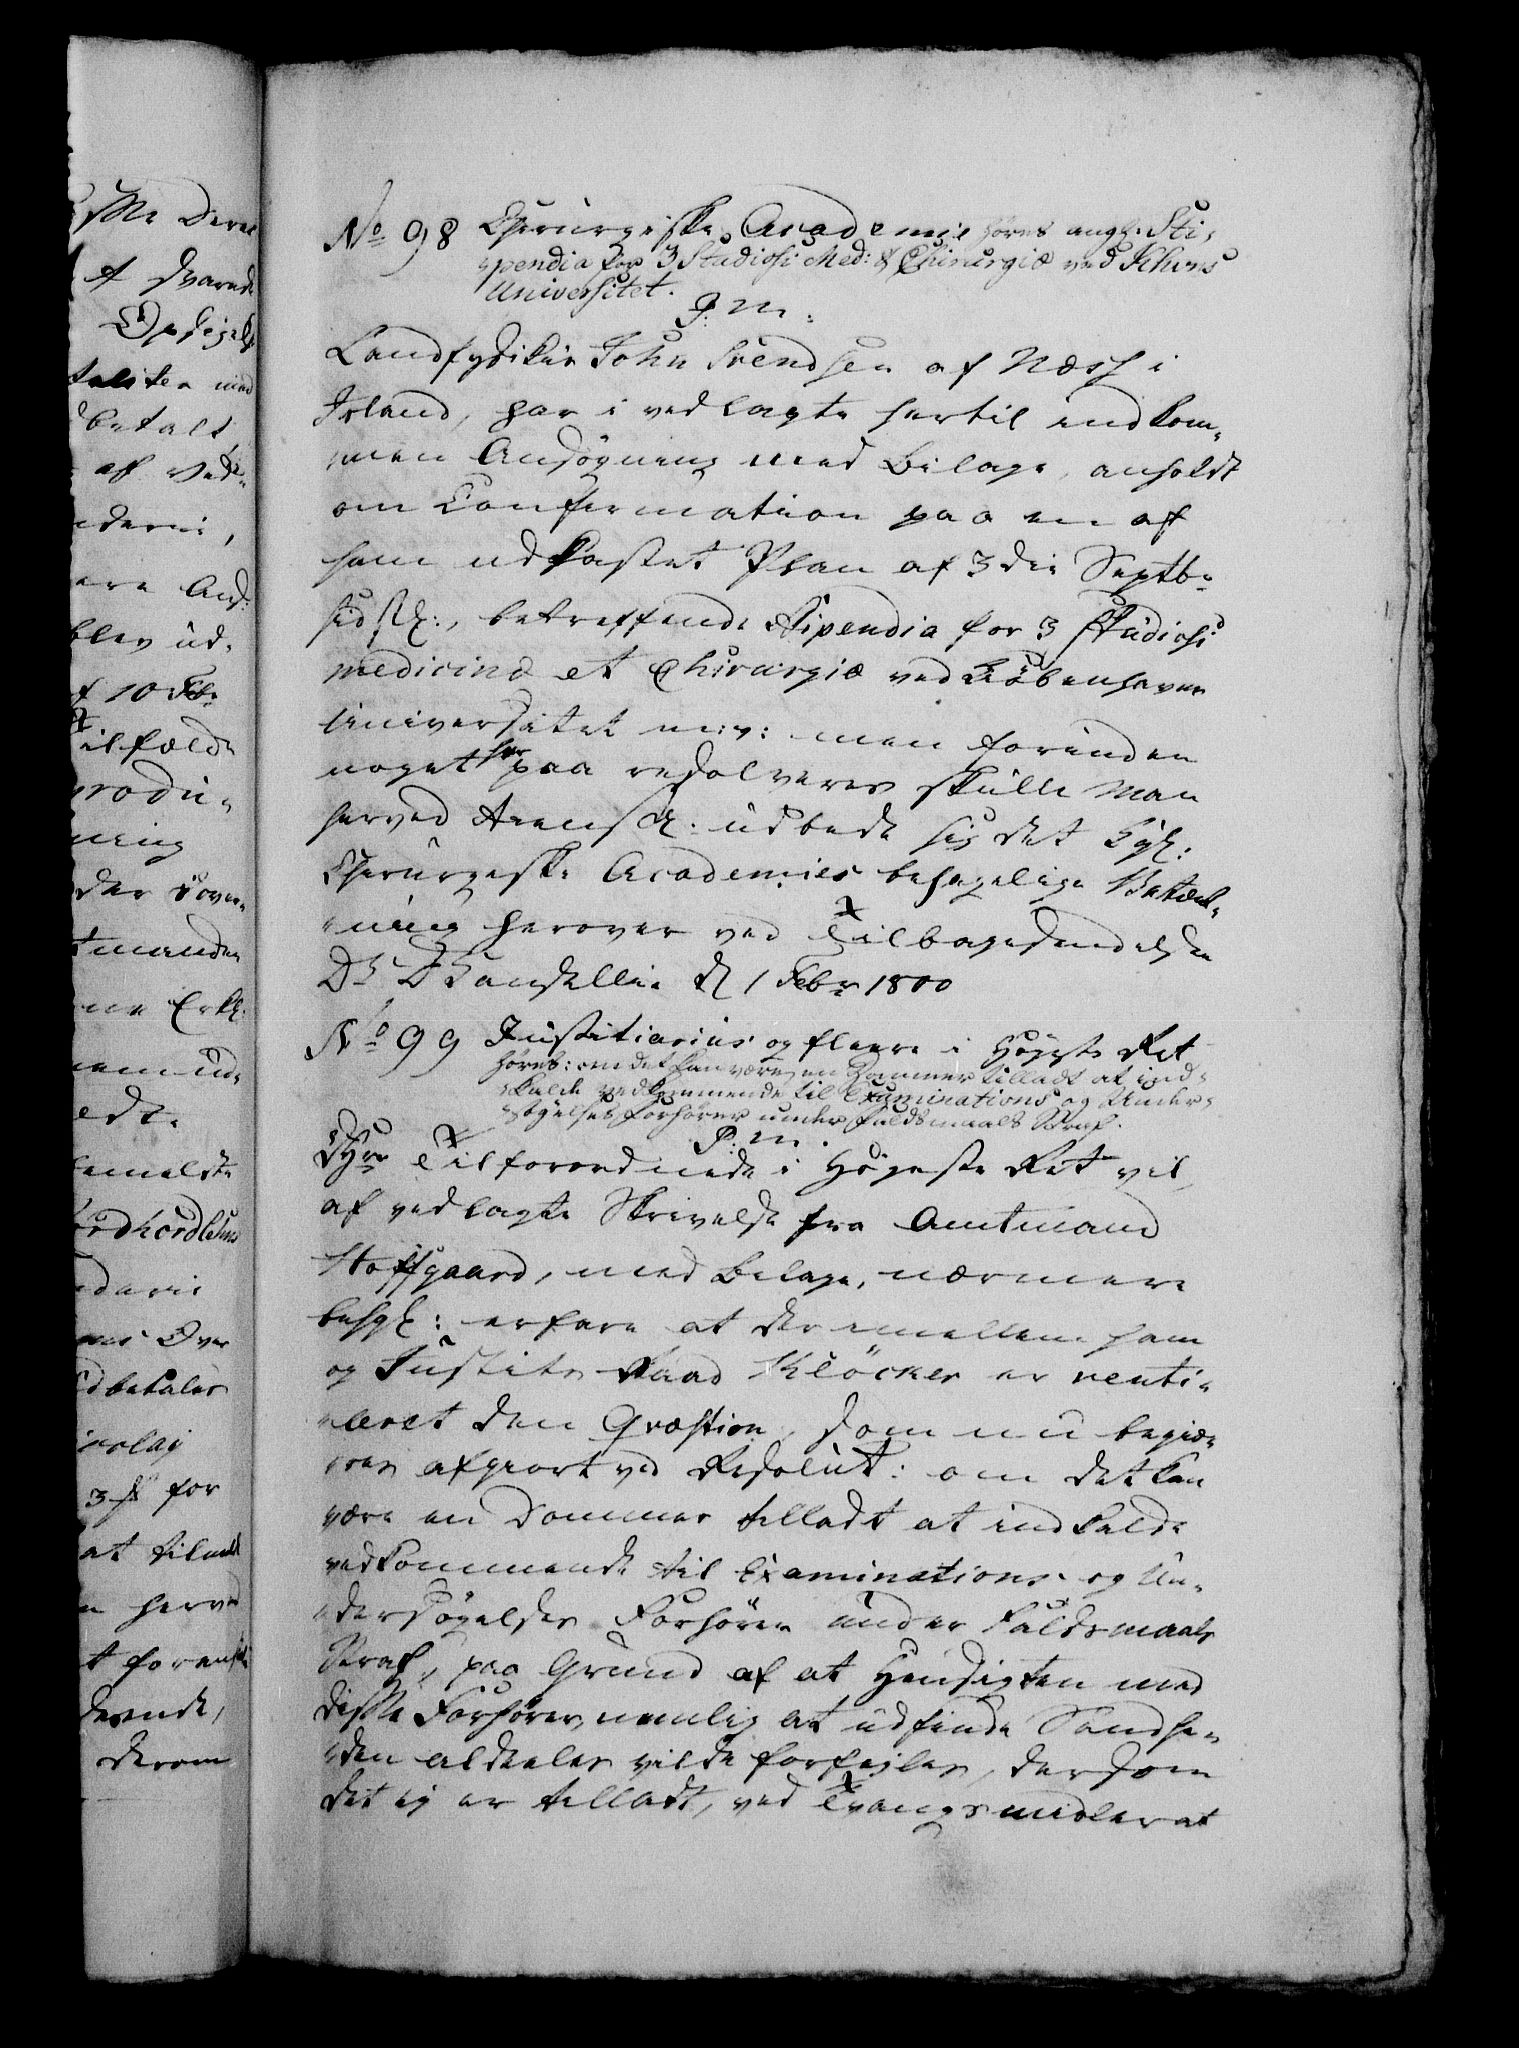 No 98 Chirurgiske Academie høres angl: Sti-
-pendia for 3 Studiosi Med: & Chirurgiæ ved Kbhvns
Universitet.
P: M:
Landfysikus John Svendsen af Næss i
Island, har i vedlagte hertil indkom-
-men Ansøgning med Bilage, anholdt
om Confirmation paa en af
ham udkastet Plan af 3die Septbr
sidstl:, betreffende Stipendia for 3 Studiosi
medicinæ et Chirurgiæ ved Kiøbenhavns
Universitet m:v: men forinden
noget her paa resolveres skulle Man
herved tienstl: udbede sig det Kgl:
Chirurgiske Academies behagelige Betænk-
-ning herover ved Tilbagesendelsen
D: D: Cancellie d 1 Febr 1800
No 99 Justitiarius og fleere i Høyeste Ret
høres: om det kan være en Dommer tilladt at ind-
-kalde vedkommende til Examinations og Under-
-søgelses forhører under faldsmaals Straf.
P: M:
Tilforordnede i Høyeste Ret vil
af vedlagte Skrivelse fra Amtmand
Stoffgaard, med Bilage, nærmere
behgl: erfare at der imellem ham
og Justits Raad Klöcker er venti-
-leret den Qvæstion, som nu begiæ-
-res afgiort ved Resolut: om det kan
være en Dommer tilladt at indkalde
vedkommende til Examinations- og Un-
-dersøgelses Forhører under Faldsmaals
Straf, paa Grund af at Hensigten med
disse Forhører, nemlig at udfinde Sandhe-
-den aldeeles vilde forfeyles, dersom
det ej er tilladt, ved Tvangsmidler at